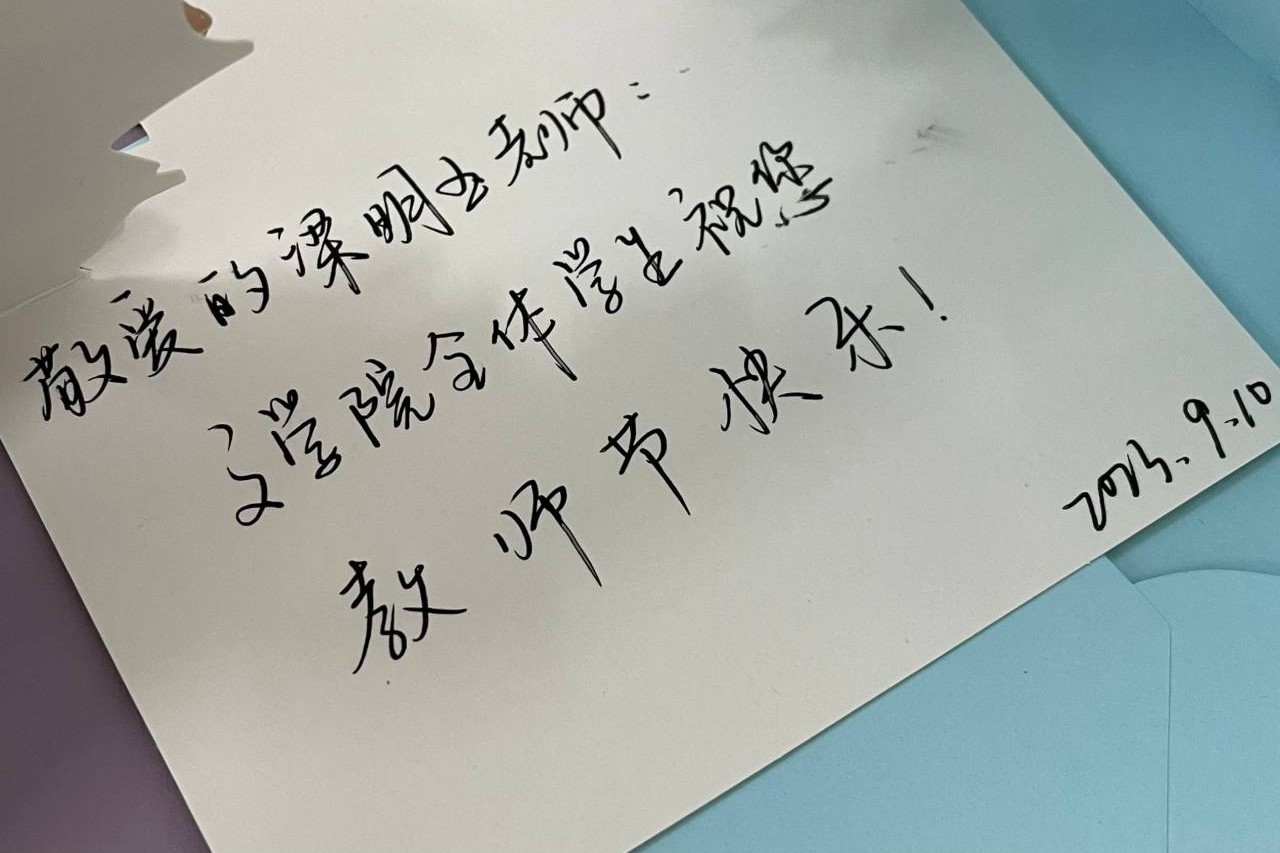 敬爱的谭明主教师:
文学院全体学生祝您
教师节快乐!
2023.9.10